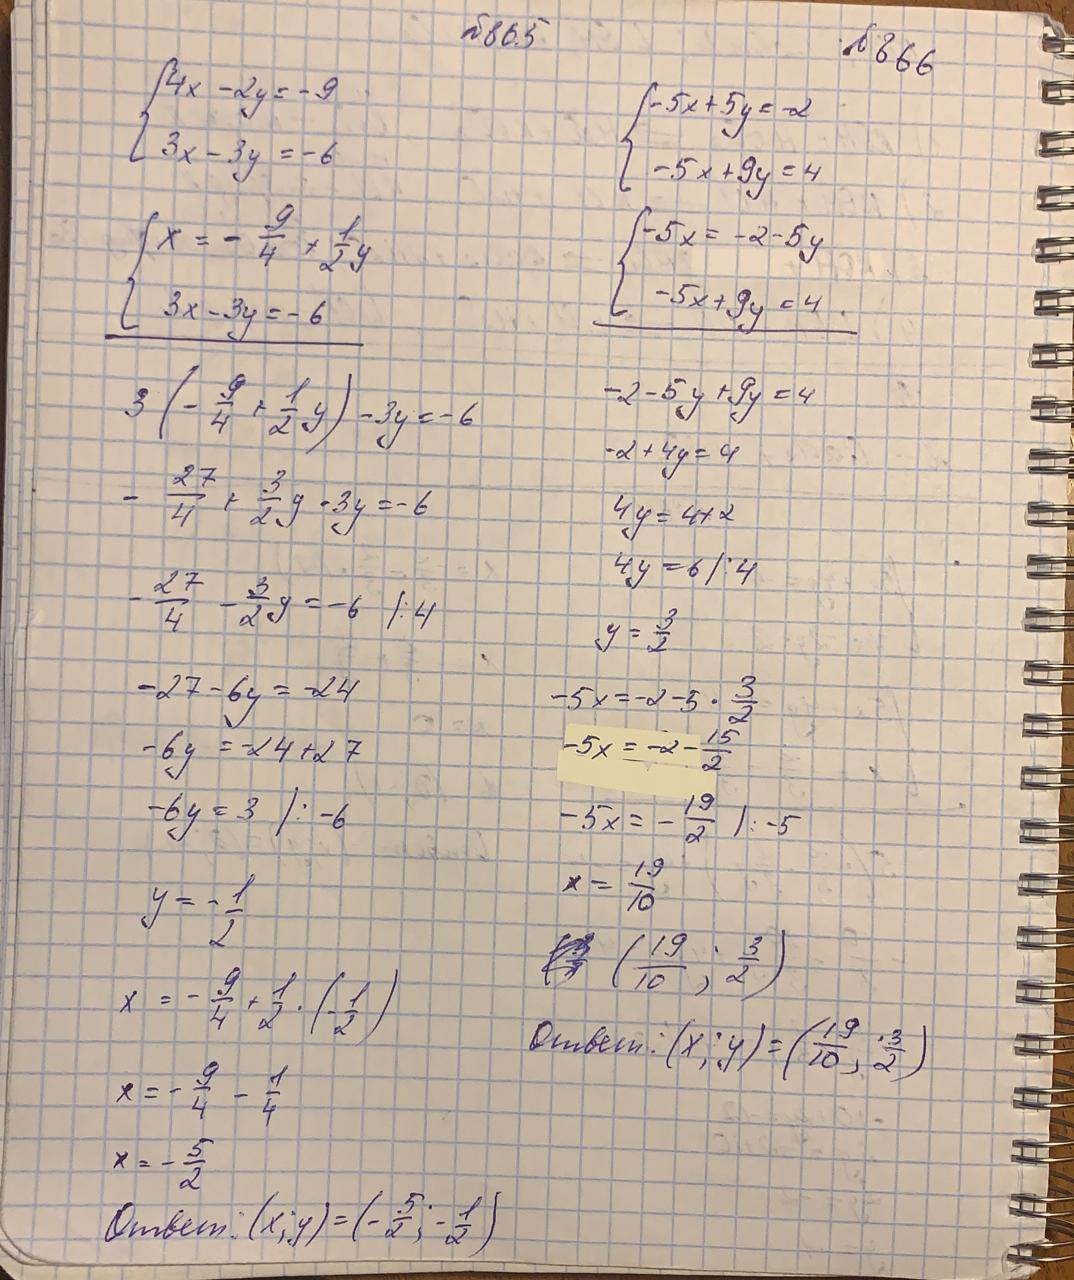 №865
{4x - 2y = -9
3x - 3y = -6
{x = - 9/4 + 1/2 y
3x - 3y = -6
3 (- 9/4 + 1/2 y) - 3y = -6
- 27/4 + 3/2 y - 3y = -6
- 27/4 - 3/2 y = -6 |:4
-27 - 6y = -24
-6y = -24 + 27
-6y = 3 |: -6
y = - 1/2
x = - 9/4 + 1/2 · (- 1/2)
x = - 9/4 - 1/4
x = - 5/2
Ответ: (x; y) = (- 5/2; - 1/2)
№866
{-5x + 5y = -2
-5x + 9y = 4
{-5x = -2 - 5y
-5x + 9y = 4
-2 - 5y + 9y = 4
-2 + 4y = 4
4y = 4 + 2
4y = 6 |:4
y = 3/2
-5x = -2 - 5 · 3/2
-5x = -2 - 15/2
-5x = - 19/2 |: -5
x = 19/10
(19/10; 3/2)
Ответ: (x; y) = (19/10; 3/2)